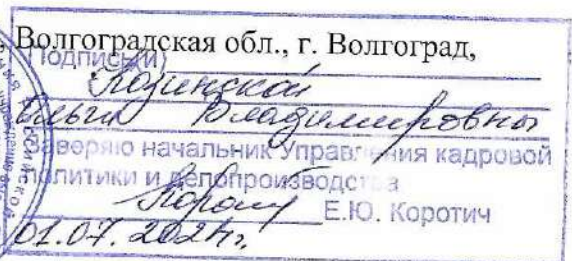 Волгоградская обл., г. Волгоград,
Подпись(и)
Козинской
Ольги Владимировны
Заверяю начальник Управления кадровой
политики и делопроизводства
Е.Ю. Коротич
01.07.2024г.